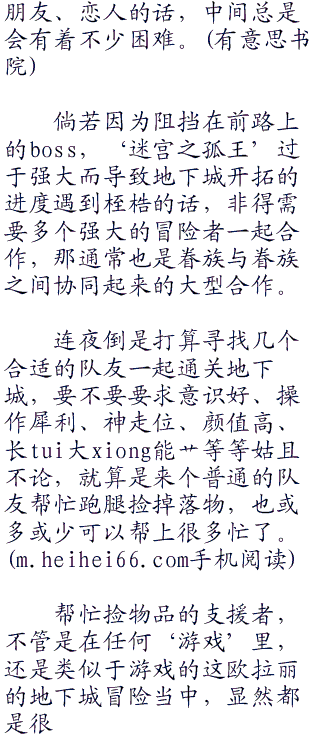 朋友、恋人的话，中间总是
会有着不少困难。(有意思书
院)
倘若因为阻挡在前路上
的boss，‘迷宫之孤王’过
于强大而导致地下城开拓的
进度遇到桎梏的话，非得需
要多个强大的冒险者一起合
作，那通常也是眷族与眷族
之间协同起来的大型合作。
连夜倒是打算寻找几个
合适的队友一起通关地下
城，要不要要求意识好、操
作犀利、神走位、颜值高、
长tui大xiong能艹等等姑且
不论，就算是来个普通的队
友帮忙跑腿捡掉落物，也或
多或少可以帮上很多忙了。
(m.heihei66.com手机阅读)
帮忙捡物品的支援者，
不管是在任何‘游戏’里，
还是类似于游戏的这欧拉丽
的地下城冒险当中，显然都
是很